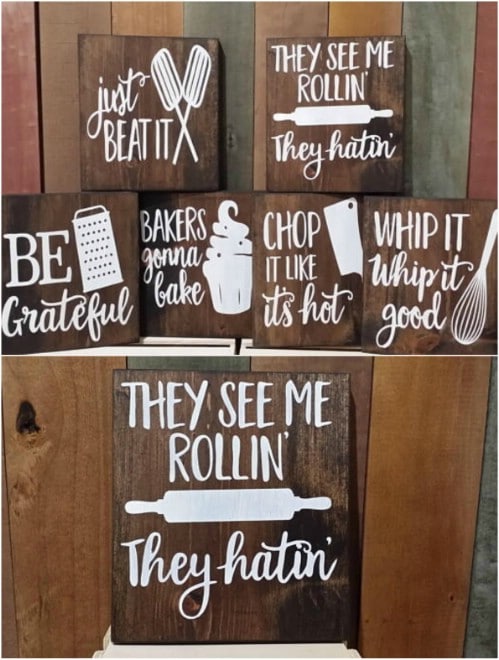 just
BEAT IT
THEY SEE ME
ROLLIN'
They hatin'
BE
Grateful
BAKERS
gonna
bake
CHOP
IT LIKE
it's hot
WHIP IT
Whip it
good
THEY SEE ME
ROLLIN'
They hatin'